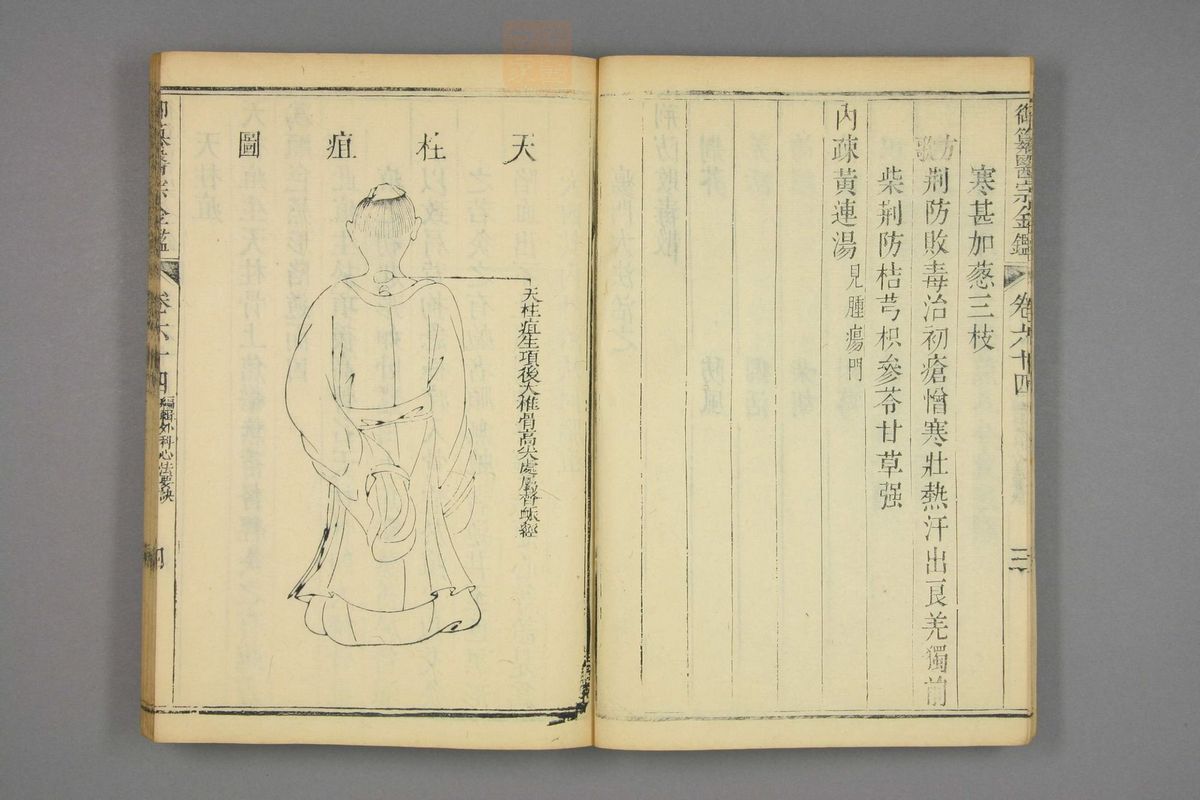 御纂醫宗金鑑 卷六十四 三
寒甚加葱三枝
方歌 荆防敗毒治初瘡憎寒壯熱汗出良羌獨前
柴荆防桔芎枳參苓甘草强
內疎黃連湯 見腫瘍門
天柱疽圖
天柱疽生項後大椎骨高尖處屬督脉經
卷六十四 編輯外科心法要訣